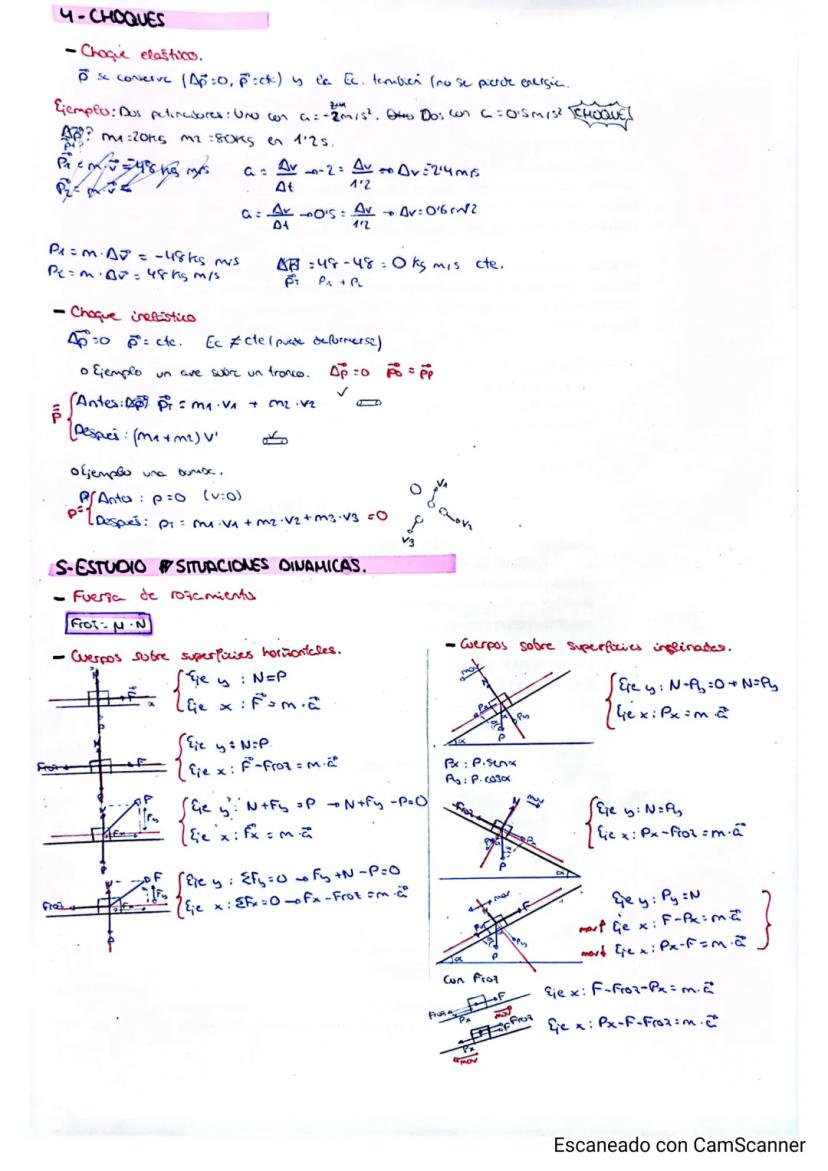 4-CHOQUES
- Choque elástico.
p⃗ se conserva (Δp⃗=0, p⃗=cte) y la Ec. también (no se pierde energía.
Ejemplo: Dos patinadores: Uno con a=-2m/s². Dos con a=0'5m/s² ¡CHOQUE!
Δp⃗? m1=20kg m2=80kg en 1'2s.
pT?
P⃗1=m·v⃗=-48 kg m/s
P⃗2=m·v⃗=
a = Δv/Δt → -2 = Δv/1'2 → Δv=-2'4m/s
a = Δv/Δt → 0'5 = Δv/1'2 → Δv=0'6 m/s2
P1 = m·Δv⃗ = -48 kg m/s
P2 = m·Δv⃗ = 48 kg m/s
Δp⃗ = 48-48 = 0 kg m/s cte.
p⃗T P1 + P2
- Choque inelástico
Δp⃗=0 p⃗=cte. Ec ≠ cte (puede deformarse)
o Ejemplo un ave sobre un tronco. Δp⃗=0 p⃗0 = p⃗F
p⃗ { Antes: Δp⃗? p⃗T = m1·v1 + m2·v2
Después: (m1+m2) V'
o Ejemplo una bomba.
p= { Antes: p=0 (v=0)
Después: pT = m1·v1 + m2·v2 + m3·v3 = 0
V1
V2
V3
5-ESTUDIO SITUACIONES DINAMICAS.
- Fuerza de rozamiento
Froz = μ·N⃗
- Cuerpos sobre superficies horizontales.
F⃗ x P
{ Eje y: N=P
Eje x: F⃗=m·a⃗
Froz F
{ Eje y: N=P
Eje x: F⃗-Froz=m·a⃗
F Fy Fx P
{ Eje y: N+Fy=P → N+Fy-P=0
Eje x: F⃗x=m·a⃗
Froz F Fy Fx P
{ Eje y: ΣFy=0 → Fy+N-P=0
Eje x: ΣFx=0 → Fx-Froz=m·a⃗
- Cuerpos sobre superficies inclinadas.
mov N Px Py P α
{ Eje y: N-Py=0 → N=Py
Eje x: Px=m·a⃗
Px: P·senα
Py: P·cosα
Froz N mov Px P α
{ Eje y: N=Py
Eje x: Px-Froz=m·a⃗
mov F Py P α
Eje y: Py=N
mov↑ Eje x: F-Px=m·a⃗
mov↓ Eje x: Px-F=m·a⃗
Con Froz
Froz Px F mov
Eje x: F-Froz-Px=m·a⃗
Px F Froz mov
Eje x: Px-F-Froz=m·a⃗
Escaneado con CamScanner